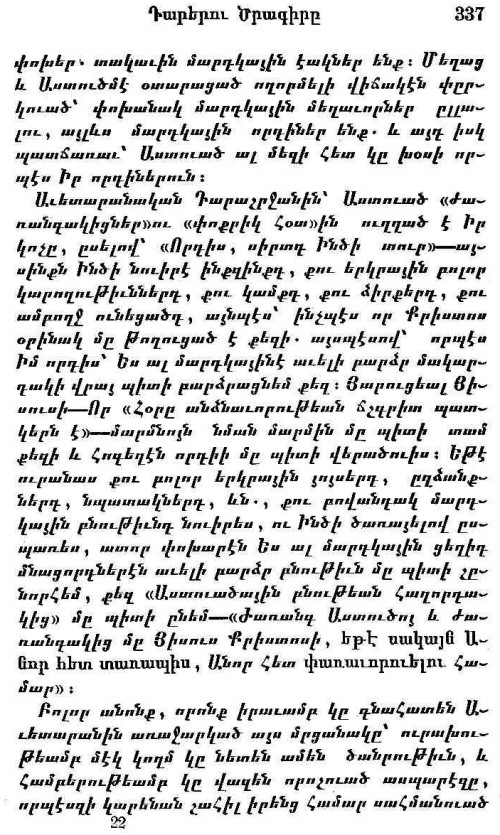 Դարերու Ծրագիրը 337
փոխեր· տակաւին մարդկային էակներ ենք։ Մեղաց
և Աստուծմէ օտարացած ողորմելի վիճակէն փըր-
կուած՝ փոխանակ մարդկային մեղաւորներ ըլլա-
լու, այլևս մարդկային որդիներ ենք· և այդ իսկ
պատճառաւ՝ Աստուած ալ մեզի հետ կը խօսի որ-
պէս Իր որդիներուն։
Աւետարանական Դարաշրջանին՝ Աստուած «Ժա-
ռանգակիցներ»ու «փոքրիկ Հօտ»ին ուղղած է Իր
կոչը, ըսելով՝ «Որդիս, սիրտդ Ինծի տուր»—այ-
սինքն Ինծի նուիրէ ինքզինքդ, քու երկրային բոլոր
կարողութիւններդ, քու կամքդ, քու ձիրքերդ, քու
ամբողջ ունեցածդ, այնպէս՝ ինչպէս որ Քրիստոս
օրինակ մը թողուցած է քեզի· այսպէսով՝ որպէս
Իմ որդիս՝ Ես ալ մարդկայինէ աւելի բարձր մակար-
դակի վրայ պիտի բարձրացնեմ քեզ։ Յարուցեալ Յի-
սուսի—Որ «Հօրը անձնաւորութեան ճշգրիտ պատ-
կերն է»—մարմնոյն նման մարմին մը պիտի տամ
քեզի և Հոգեղէն որդիի մը պիտի վերածուիս։ Եթէ
ուրանաս քու բոլոր երկրային յոյսերդ, ըղձանք-
ներդ, նպատակներդ, ևն·, քու բովանդակ մարդ-
կային բնութիւնդ նուիրես, ու Ինծի ծառայելով ըս-
պառես, ատոր փոխարէն Ես ալ մարդկային ցեղիդ
մնացորդներէն աւելի բարձր բնութիւն մը պիտի շը-
նորհեմ, քեզ «Աստուածային բնութեան Հաղորդա-
կից» մը պիտի ընեմ—«Ժառանգ Աստուծոյ և ժա-
ռանգակից մը Յիսուս Քրիստոսի, եթէ սակայն Ա-
նոր հետ տառապիս, Անոր հետ փառաւորուելու հա-
մար»։
Բոլոր անոնք, որոնք իրաւամբ կը գնահատեն Ա-
ւետարանին առաջարկած այս մրցանակը՝ ուրախու-
թեամբ մէկ կողմ կը նետեն ամեն ծանրութիւն, և
համբերութեամբ կը վազեն որոշուած ասպարէզը,
որպէսզի կարենան շահիլ իրենց համար սահմանուած
22